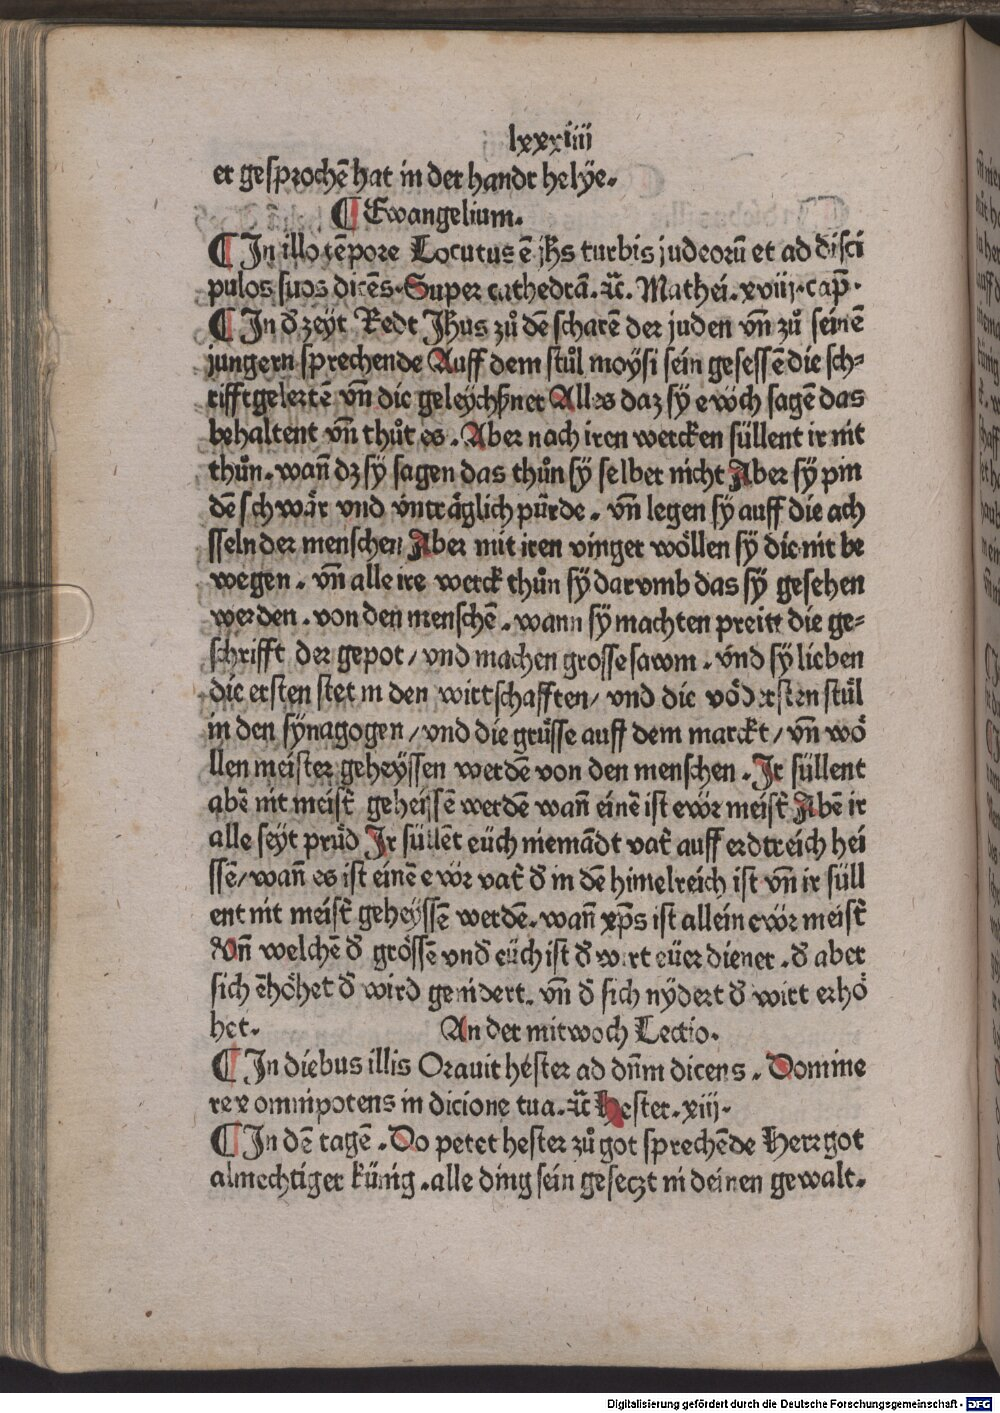 lxxxiiij
er gesprochē hat in der handt helÿe.
¶ Ewangelium.
¶ In illo tēpore Locutus ē jhs turbis judeorū et ad disci
pulos suos dicēs. Super cathedrā. ꝛc̄. Mathei. xviij. cap̄.
¶ In d̄ zeyt Redt Jhus zů dē scharē der juden vn̄ zů seinē
jungern sprechende Auff dem stůl moÿsi sein gesessē die sch⸗
rifftgelertē vn̄ die geleÿchßner Alles daz sÿ ewöch sagē das
behaltent vn̄ thůt es. Aber nach iren wercken süllent ir nit
thůn. wan̄ dz sÿ sagen das thůn sÿ selber nicht Aber sÿ pin
dē schwär vnd vnträglich pürde. vn̄ legen sÿ auff die ach
sseln der menschen Aber mit iren vinger wöllen sÿ die nit be
wegen. vn̄ alle ire werck thůn sÿ darvmb das sÿ gesehen
werden. von den menschē. wann sÿ machten preitt die ge⸗
schrifft der gepot/ vnd machen grosse sawm. vnd sÿ lieben
die ersten stet in den wirtschafften/ vnd die vödersten stůl
in den sÿnagogen/ vnd die grüsse auff dem marckt/ vn̄ wö
llen meister geheÿssen werdē von den menschen. Ir süllent
abē nit meist̄ geheissē werdē wan̄ einē ist ewör meist̄ Abē ir
alle seyt prüd̄ Ir süllēt eüch niemādt vat̄ auff erdtreich hei
ssē/ wan̄ es ist einē ewör vat̄ d̄ in dē himelreich ist vn̄ ir süll
ent nit meist̄ geheÿssē werdē. wan̄ xp̄s ist allein ewör meist̄
Vn̄ welchē d̄ grössē vnd̄ eüch ist d̄ wirt eüer diener. d̄ aber
sich ēhöhet d̄ wird genidert. vn̄ d̄ sich nÿdert d̄ wirt erhö
het. An der mitwoch Lectio.
¶ In diebus illis Orauit hester ad dn̄m dicens. Domine
rex omnipotens in dicione tua. ꝛc̄ Hester. xiij.
¶ In dē tagē. Do petet hester zů got sprechēde Herr got
almechtiger künig. alle ding sein gesetzt in deinen gewalt.
Digitalisierung gefördert durch die Deutsche Forschungsgemeinschaft - DFG